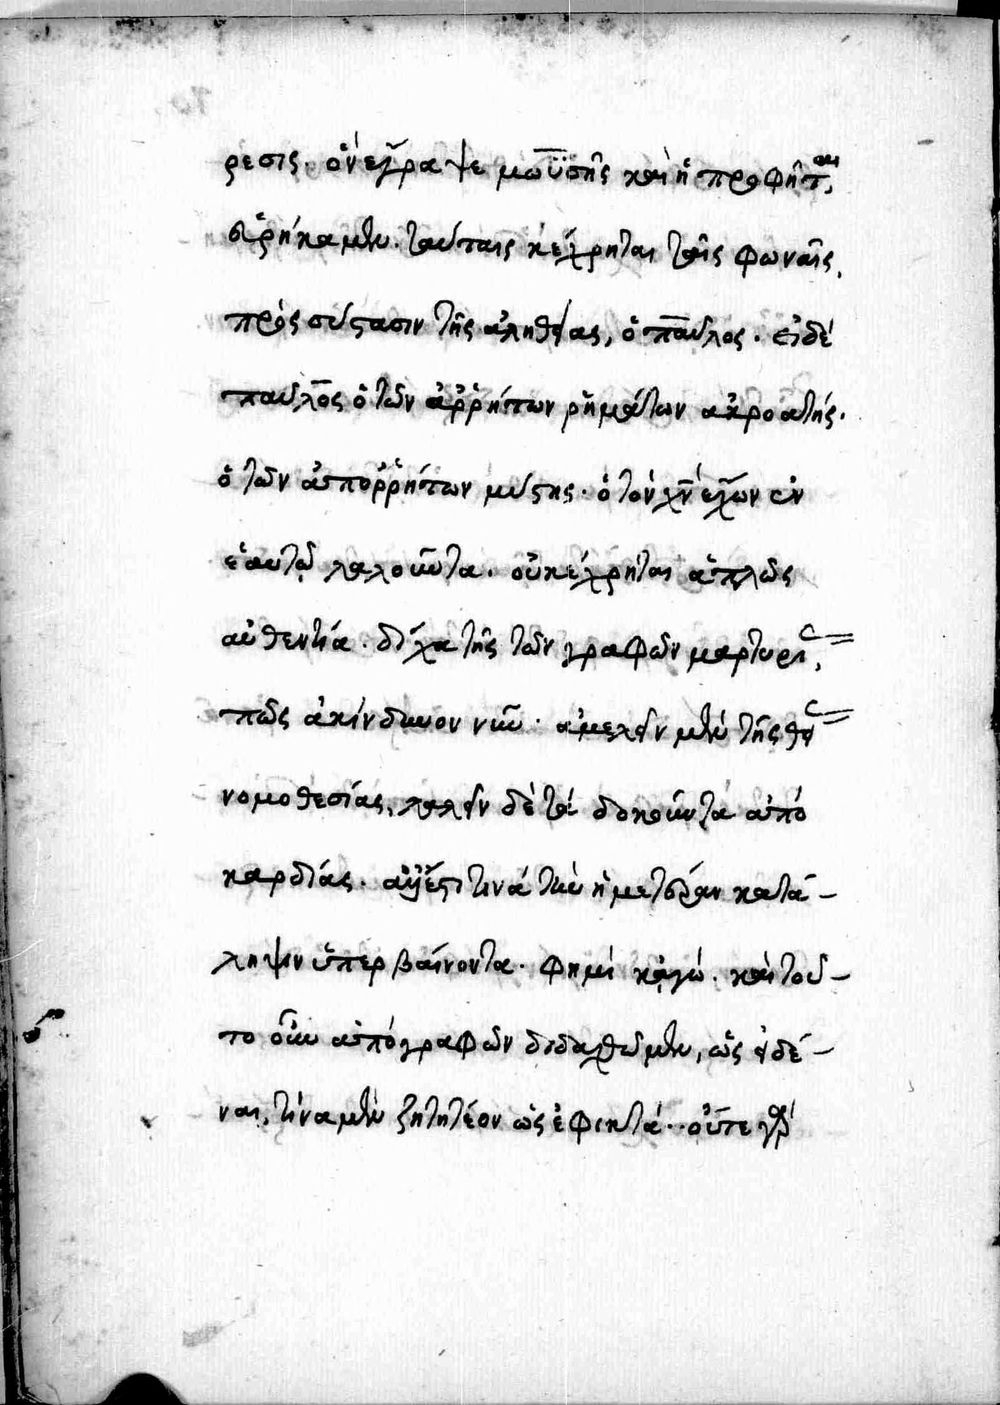 ρεσις. ὃν ἔγραψε μωϋσῆς καὶ ἡ προφῆται,
εὑρήκαμεν. ταύταις κέχρηται ταῖς φωναῖς,
πρὸς σύστασιν τῆς ἀληθείας, ὁ παῦλος. εἰ δὲ
παῦλος ὁ τῶν ἀρρήτων ῥημάτων ἀκροατής.
ὁ τῶν ἀπορρήτων μύστης. ὁ τὸν χν ἔχων ἐν
ἑαυτῷ λαλοῦντα. οὐ κέχρηται ἁπλῶς
αὐθεντία. δίχα τῆς τῶν γραφῶν μαρτυρίας,
πῶς ἀκίνδυνον νῦν. ἀμελεῖν μὲν τῆς θείας
νομοθεσίας, λαλεῖν δὲ τὰ δοκοῦντα ἀπὸ
καρδίας. ἀλλ' ἔστι τινὰ τὴν ἡμετέραν κατά-
ληψιν ὑπερβαίνοντα. φημὶ κἀγώ. καὶ τοῦ-
το οὖν ἀπὸ γραφῶν διδαχθῶμεν, ὡς εἰδέ-
ναι, τίνα μὲν ζητητέον ὡς ἐφικτά. οὔτε γὰρ